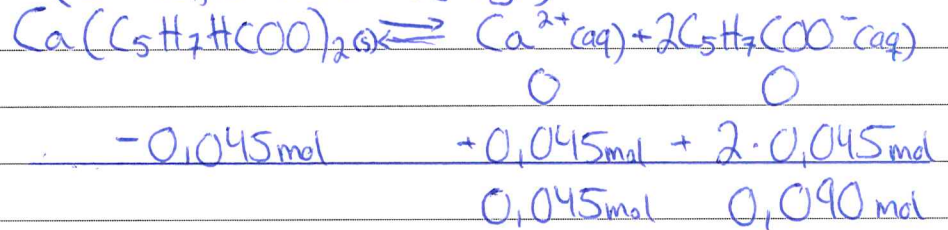 Ca(C₅H₇HCOO)₂(s) ⇌ Ca²⁺(aq) + 2C₅H₇COO⁻(aq)
0 0
-0,045mol +0,045mol + 2·0,045mol
0,045mol 0,090mol